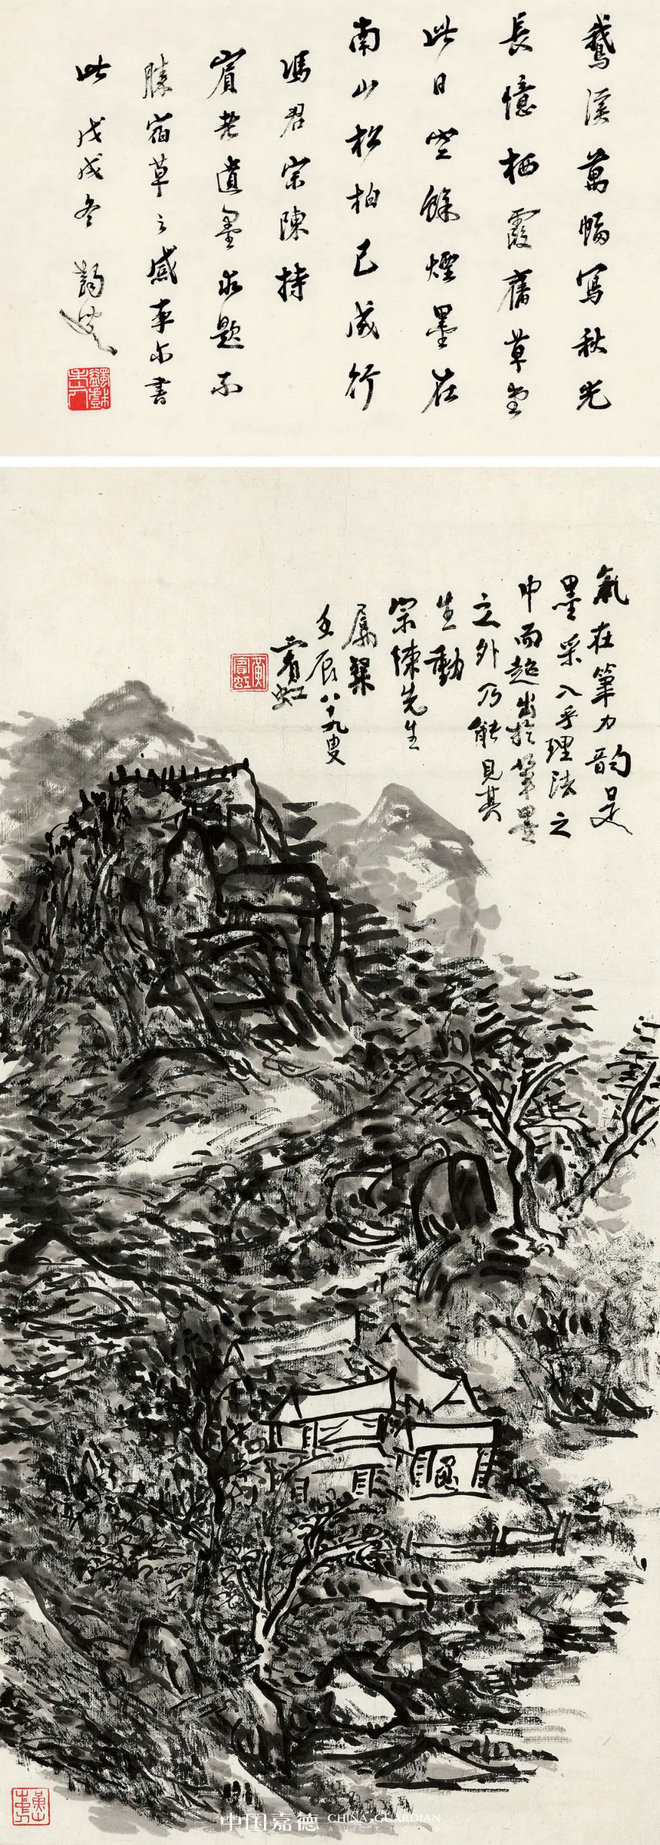 鵝溪萬幅寫秋光
長憶栖霞舊草堂
此日空餘煙墨在
南山松柏已成行
馮君宗陳持
賓老遺墨永題不
勝宿草之感率爾書
此 戊戌冬
氣在筆力韵是
墨采入乎理法之
中而超出於筆墨
之外乃能見其
生動
宗陳先生
屬粲
壬辰八十九叟
賓虹
黃賓虹
中国嘉德 CHINA GUARDIAN
AUCTIONS